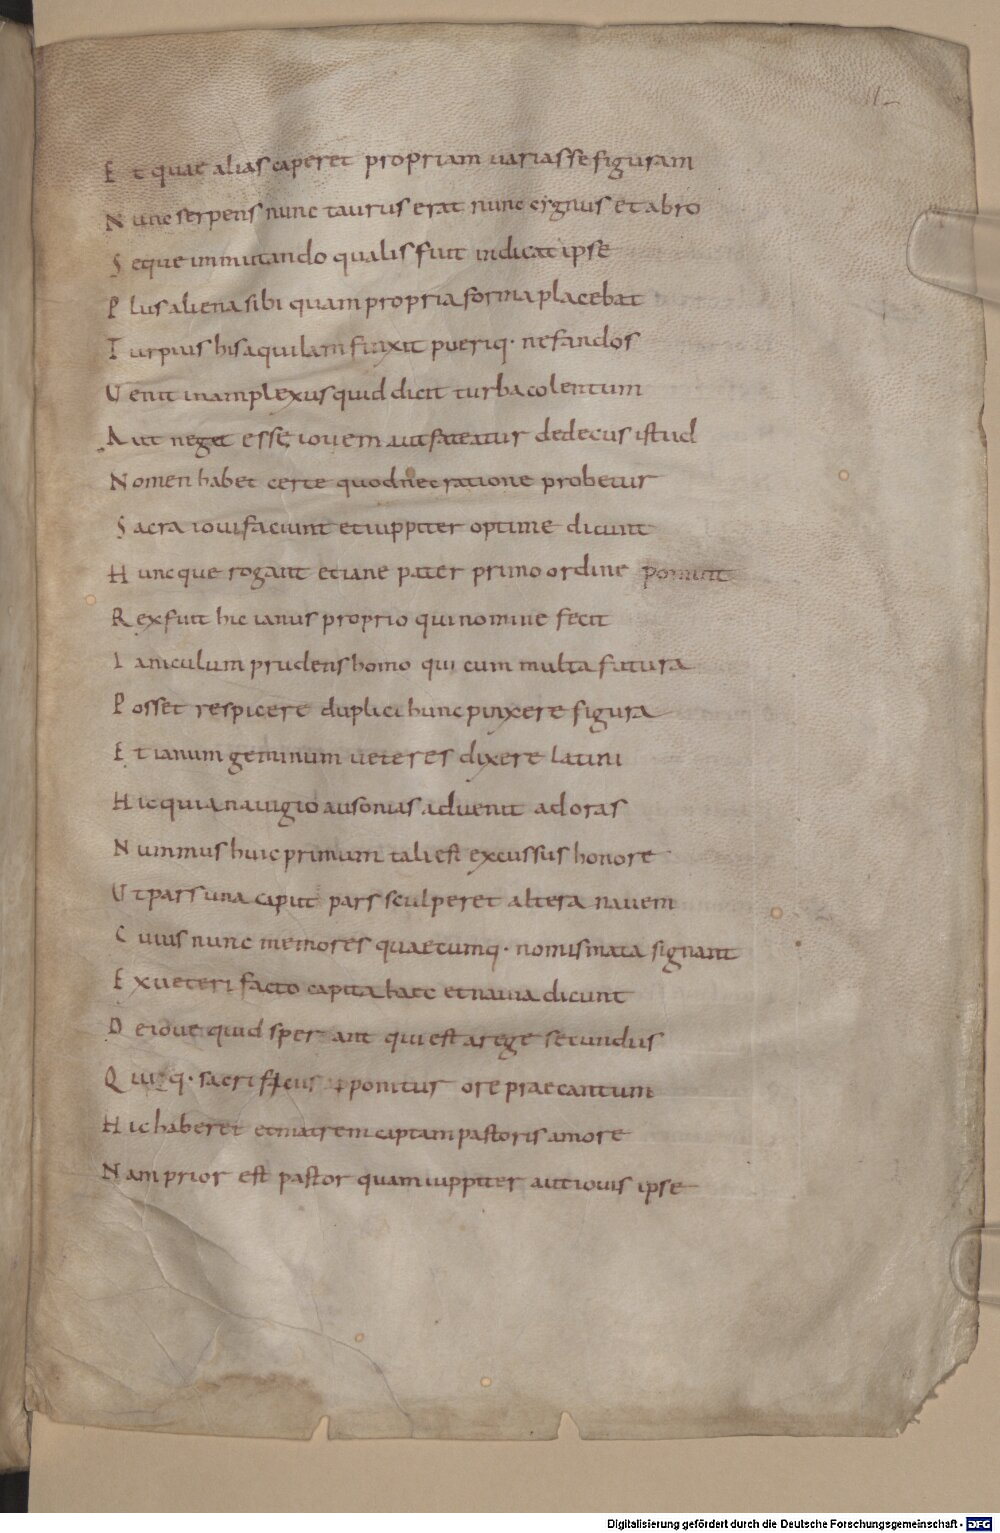 112
Et quae alias caperet propriam uariasse figuram
Nunc serpens nunc taurus erat nunc cygnus et abro
Seque immutando qualis fuit indicat ipse
Plus aliena sibi quam propria forma placebat
Turpius his aquilam finxit pueriq· nefandos
Uenit in amplexus quid dicit turba colentum
Aut neget esse iouem aut fateatur dedecus istud
Nomen habet certe quod nec ratione probetur
Sacra ioui faciunt et iuppiter optime dicunt
Huncque rogant et iane pater primo ordine ponunt
Rex fuit hic ianus proprio qui nomine fecit
Ianiculum prudens homo qui cum multa futura
Posset respicere duplici hunc pinxere figura
Et ianum geminum ueteres dixere latini
Hic quia nauigio ausonias aduenit ad oras
Nummus huic primum tali est excussus honore
Ut pars una caput pars sculperet altera nauem
Cuius nunc memores quaecumq· nomismata signant
Ex ueteri facto capita haec et nauia dicunt
De ioue quid sperant qui est a rege secundus
Quiq· sacrificus apponitur ore praecantum
Hic haberet et matrem captam pastoris amore
Nam prior est pastor quam iuppiter aut iouis ipse
Digitalisierung gefördert durch die Deutsche Forschungsgemeinschaft - DFG